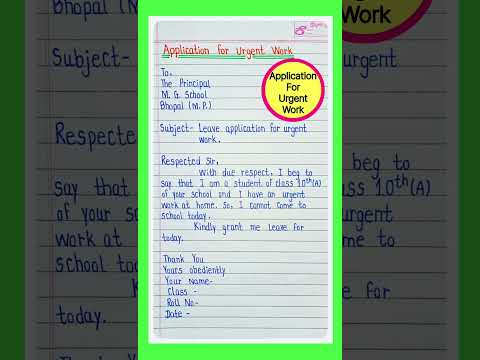 Application for Urgent Work
To,
The Principal
M. G. School
Bhopal (M.P.)
Subject- Leave application for urgent
work.
Respected Sir,
With due respect, I beg to
say that I am a student of class 10th(A)
of your school and I have an urgent
work at home. So, I cannot come to
school today.
Kindly grant me leave for
today.
Thank You
Yours obediently
Your Name-
Class -
Roll No-
Date -
Application
For
Urgent
Work
Bhopal (M
Subject-
urgent
Respected
beg to
say that
lass 10th(A)
of your sc
urgent
work at
me to
school toda
K
ve for
today.